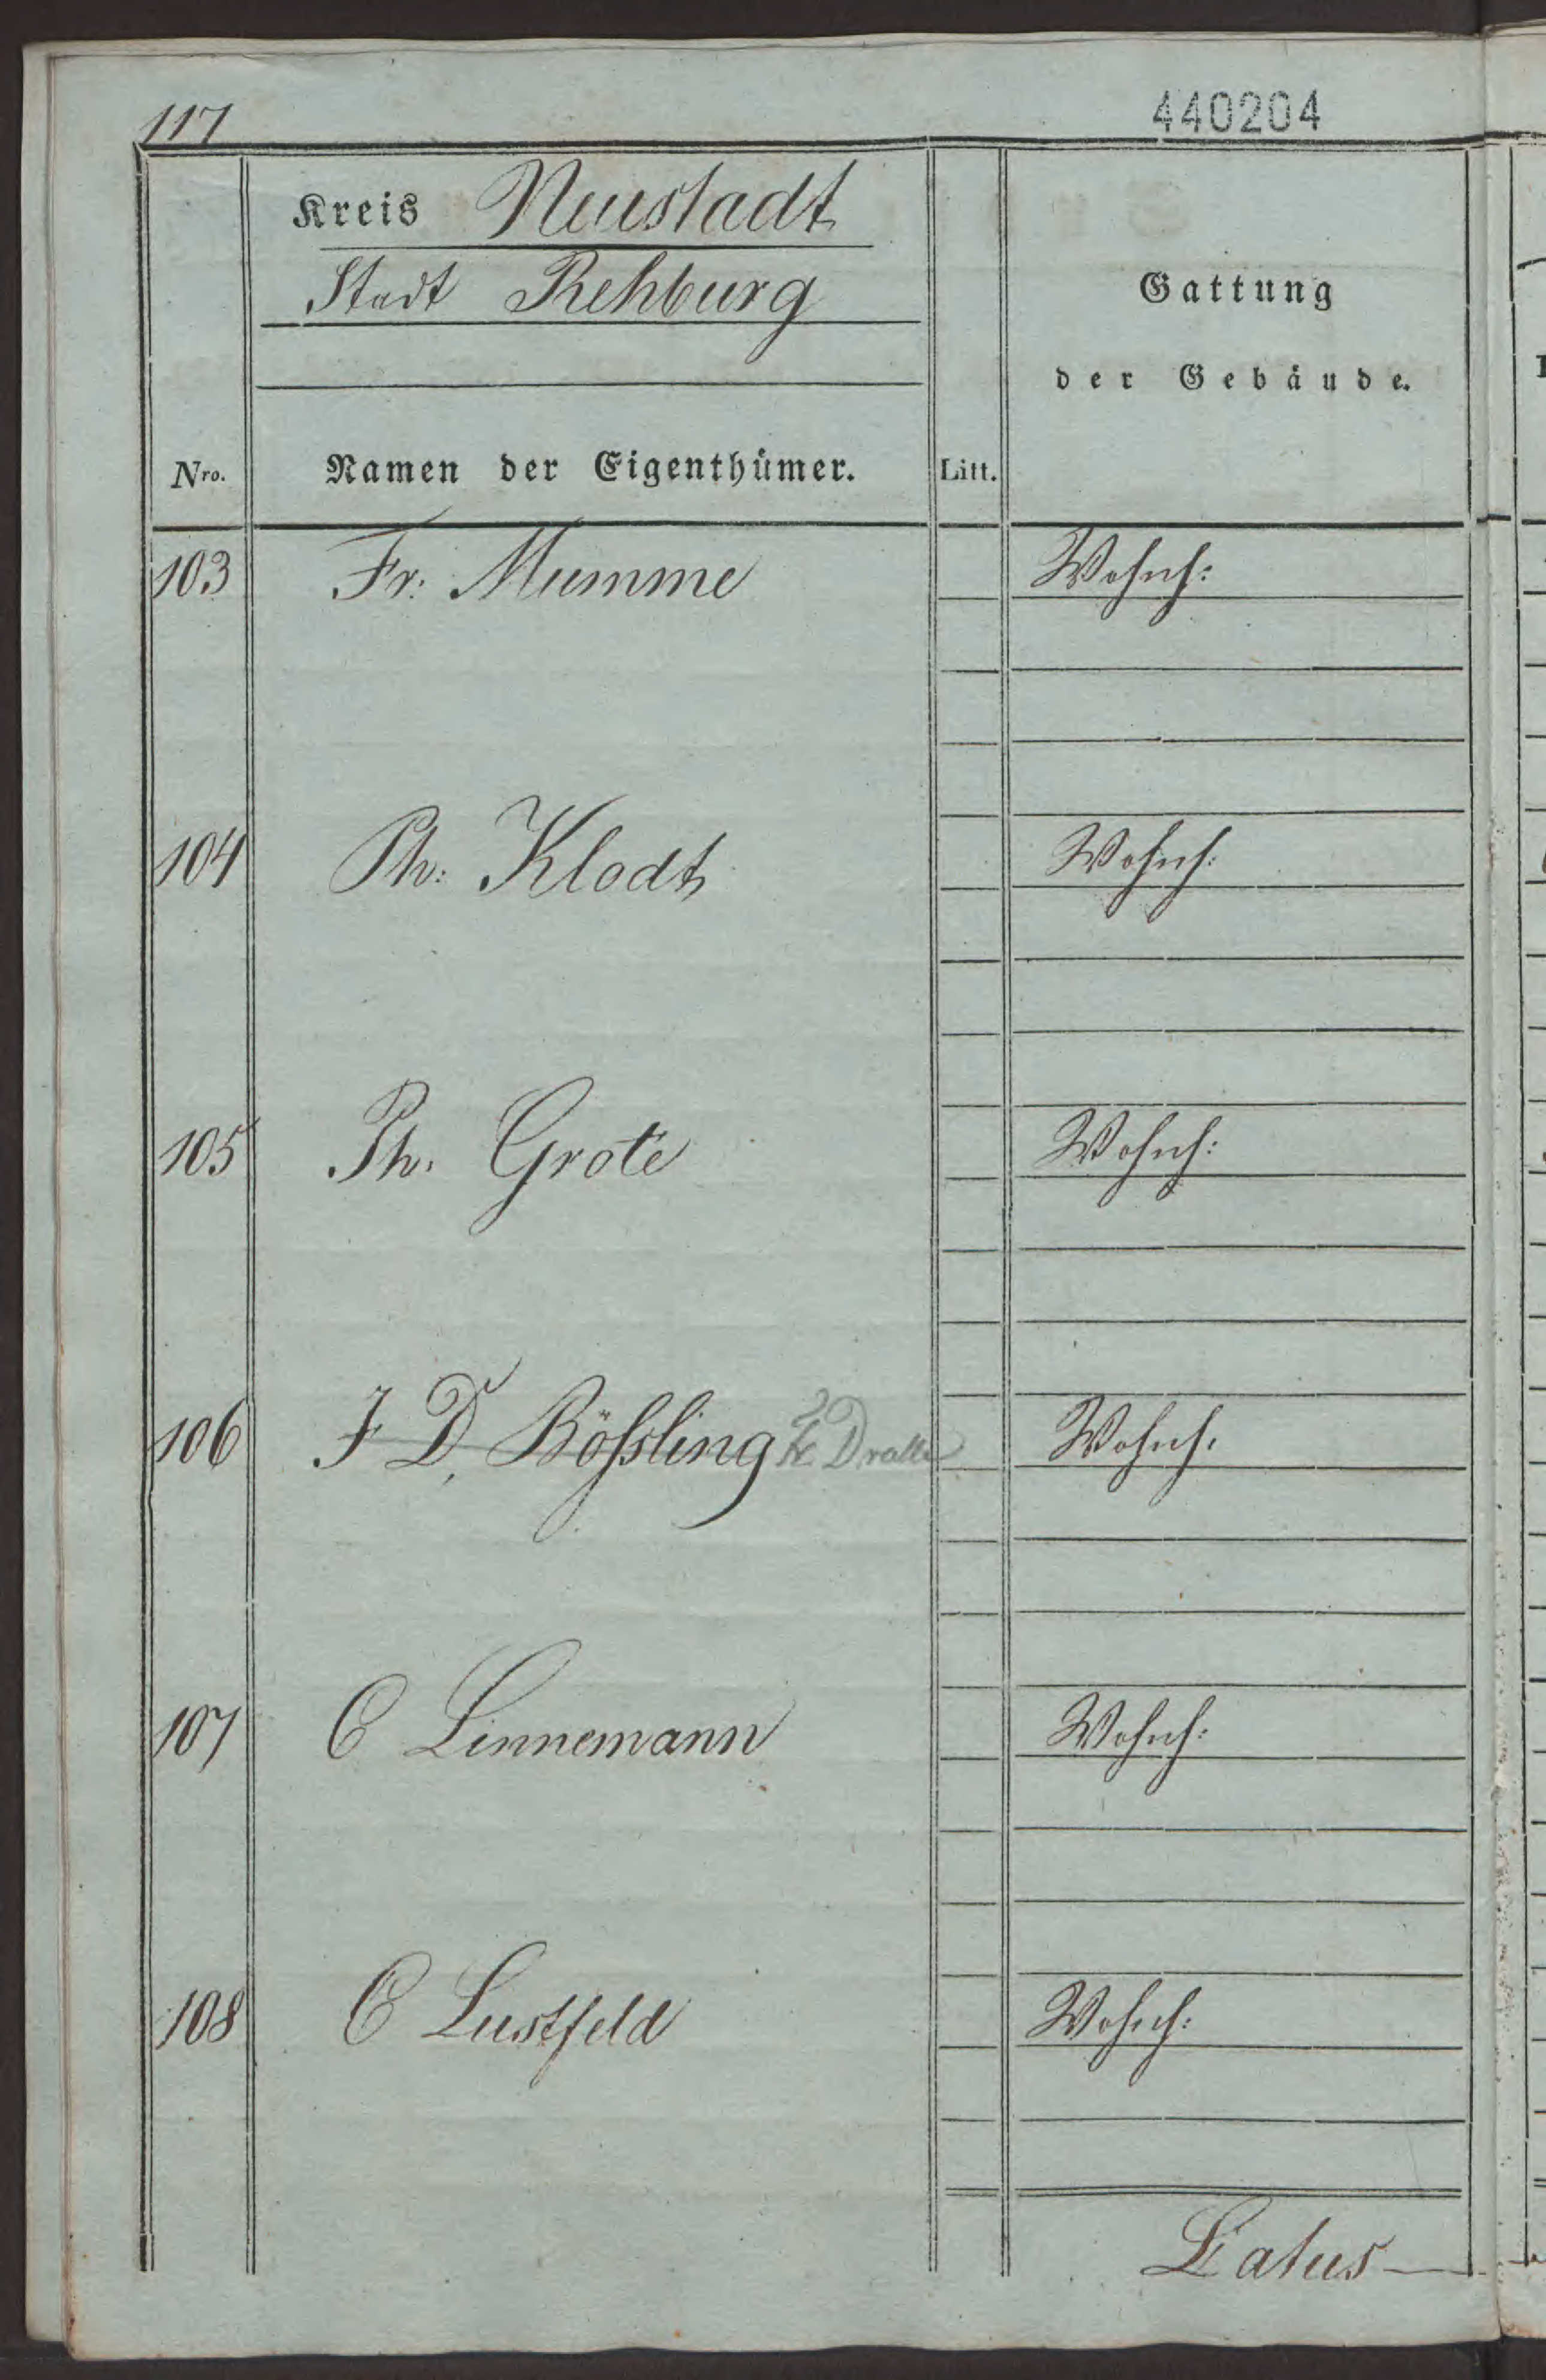 117
440204
Kreis Neustadt
Stadt Rehburg
Gattung
der Gebäude.
Nro. Namen der Eigenthümer. Litt.
103 Fr. Mumme Wohnh:
104 Ph: Klodt Wohnh:
105 Ph. Grote Wohnh:
106 F D. Bößling Dralle Wohnh.
107 C Linnemann Wohnh:
108 C Lustfeld Wohnh:
Latus